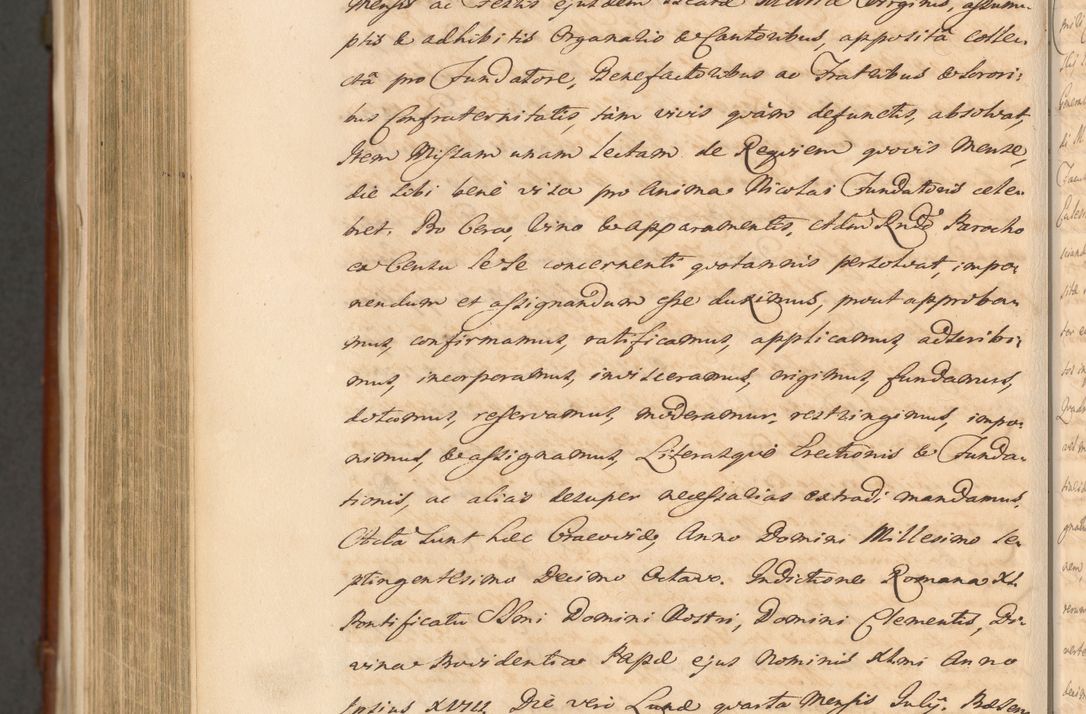 Mensis ac Festis ejusdem Beatæ Mariæ Virginis, assum-
ptis & adhibitis Organario & Cantoribus, appositâ colle-
ctâ pro Fundatore, Benefactoribus ac Fratribus & Sorori:
bus Confraternitatis, tàm vivis quàm defunctis, absolvat,
Item Missam unam lectam de Requiem quovis Mense,
die sibi benè visa pro Anima Nicolai Fundatoris cele-
bret. Pro Cera, Vino & apparamentis, Adm Rndo Parocho
ex Censu se se concernenti quotannis persolvat, impo-
nendum et assignandum esse duximus, prout approba-
mus, confirmamus, ratificamus, applicamus, adscribi:
mus, incorporamus, invisceramus, erigimus, fundamus,
dotamus, reservamus, moderamur, restringimus, impo-
nimus, & assignamus, Literasquè Erectionis & Funda-
tionis, ac alias desuper necessarias extradi mandamus.
Acta sunt hæc Cracoviæ, Anno Domini Millesimo se-
ptingentesimo Decimo Octavo. Indictione Romana XI.
Pontificatu SSmi Domini Nostri, Domini Clementis, Di-
vina Providentia Papæ ejus Nominis XI.mi Anno
Ipsius XVIII. Die verò Lunæ quarta Mensis Julij. Præsen